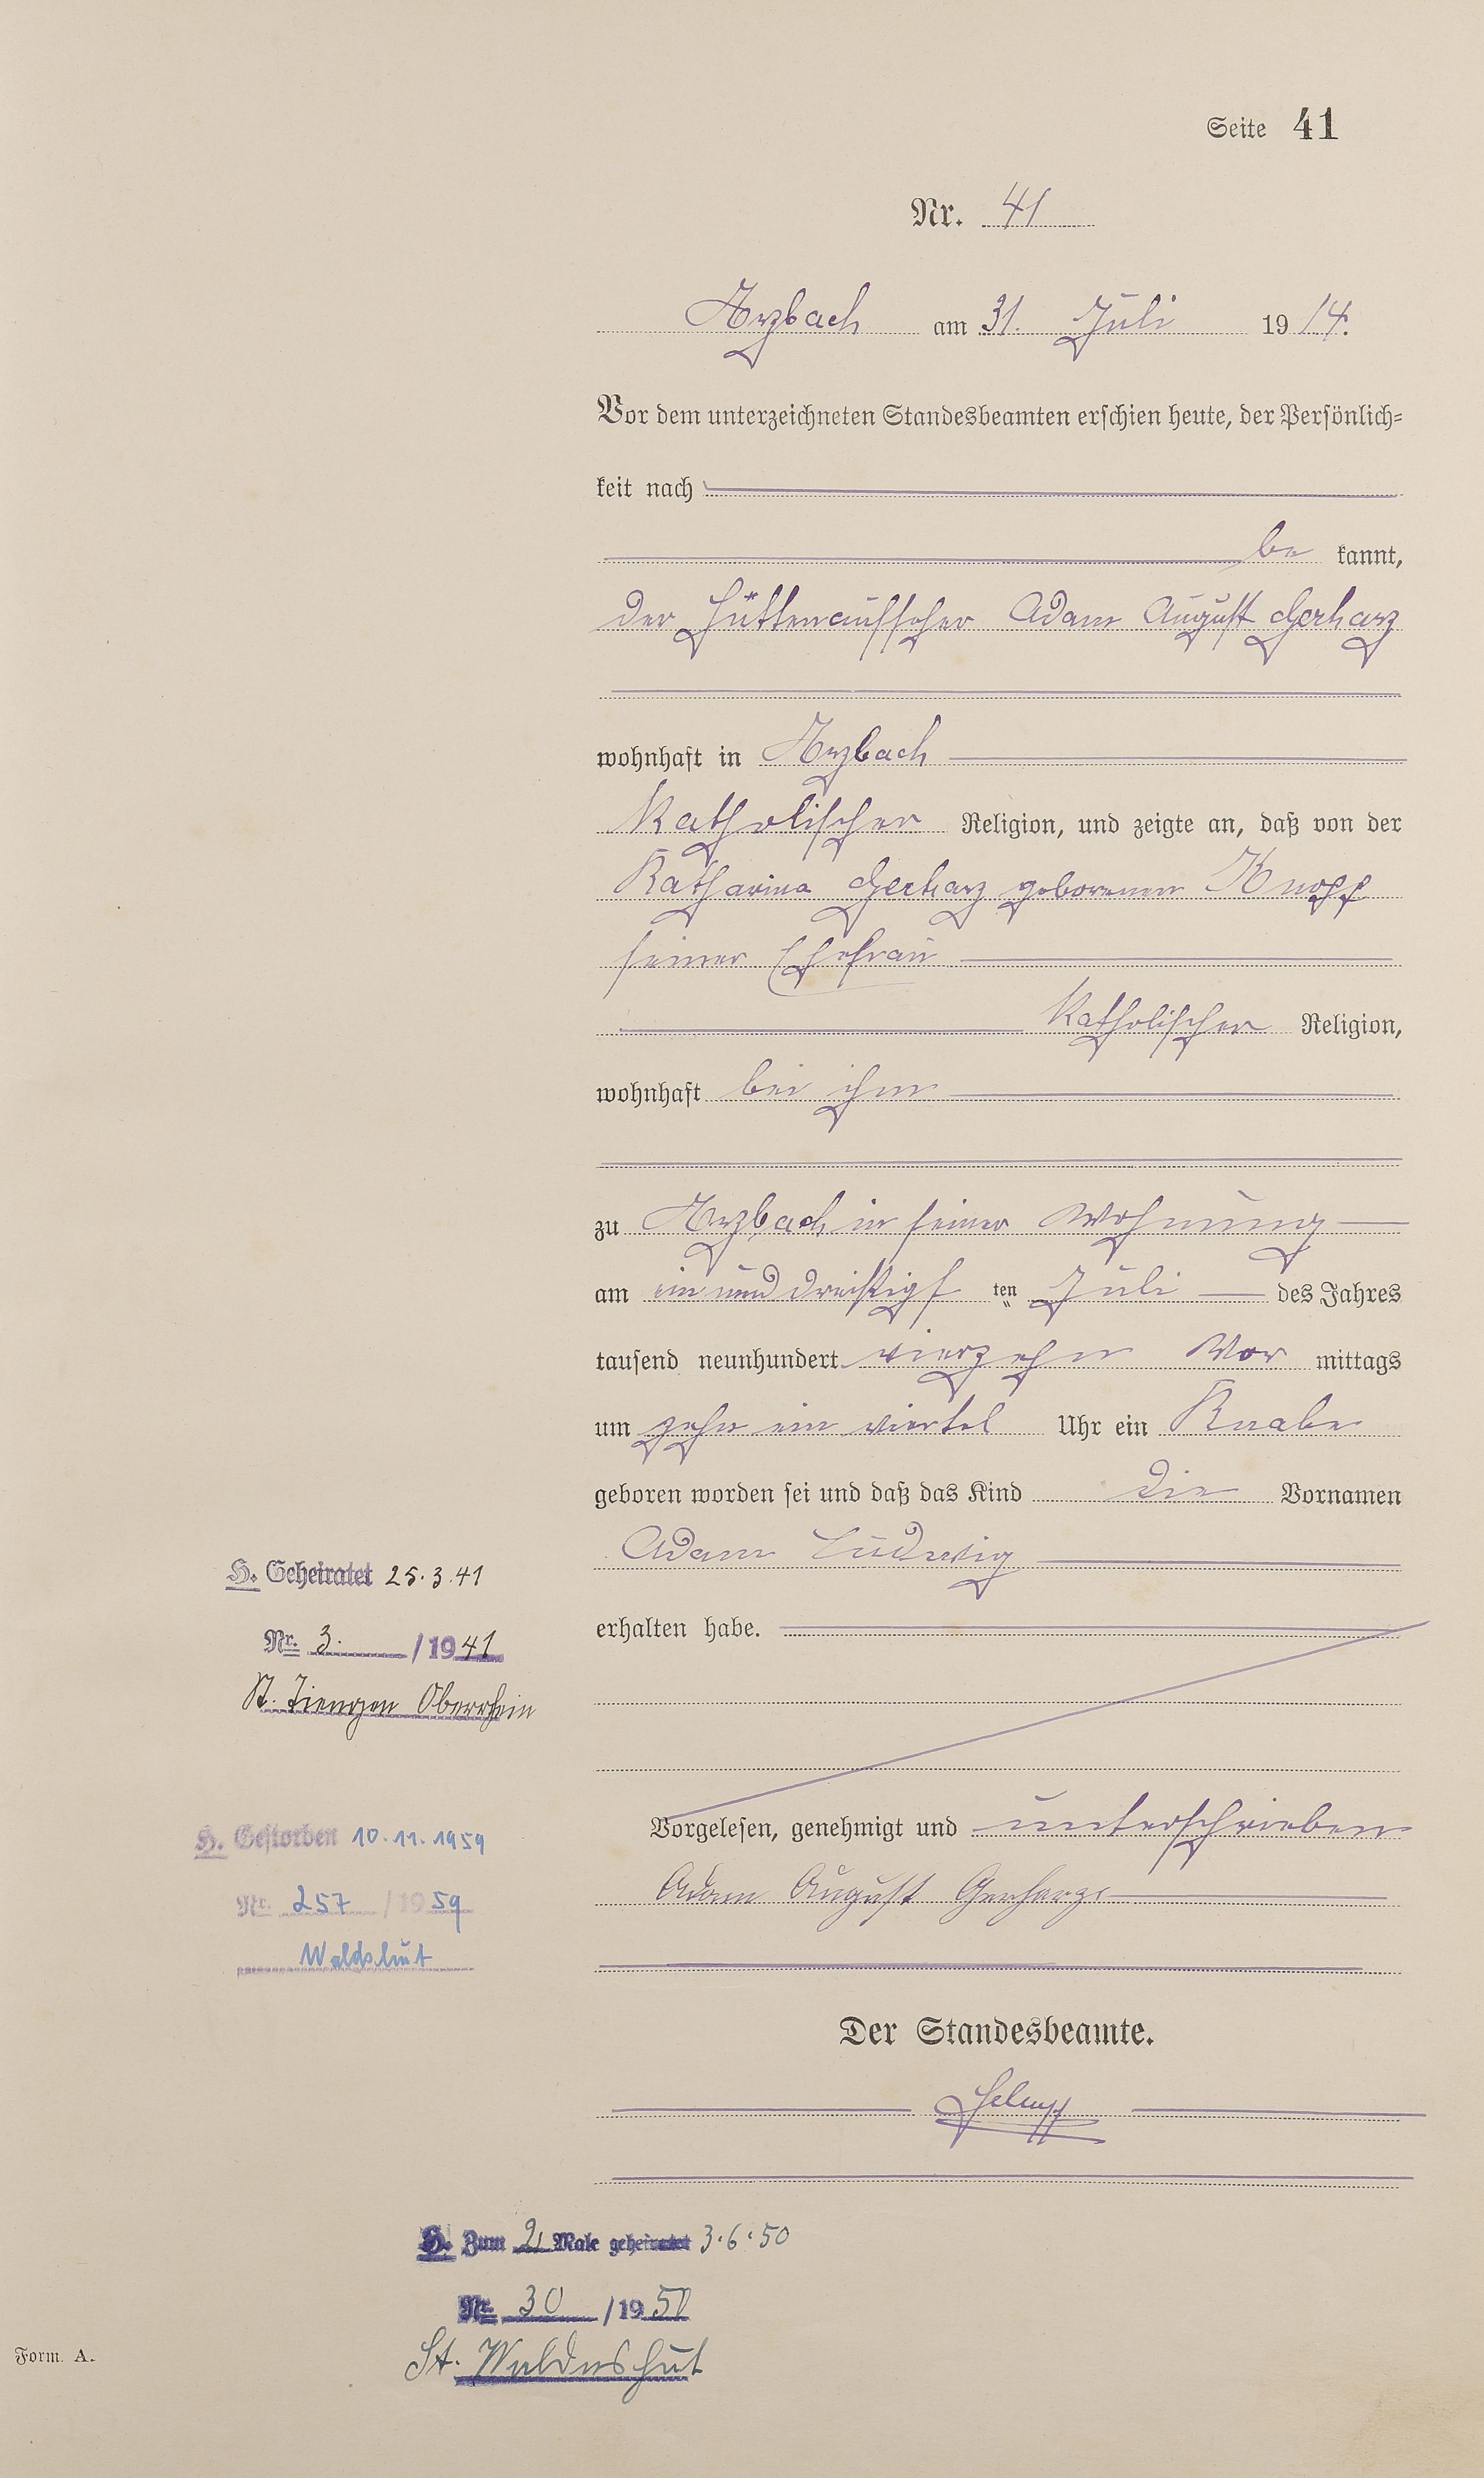 Seite 41
Nr. 41
Arzbach am 31. Juli 1914.
Vor dem unterzeichneten Standesbeamten erschien heute, der Persönlich-
keit nach
be kannt,
der Hüttenaufseher Adam August Gerharz
wohnhaft in Arzbach
Katholischer Religion, und zeigte an, daß von der
Katharina Gerharz geborenen Knopp
seiner Ehefrau
Katholischer Religion,
wohnhaft bei ihm
zu Arzbach in seiner Wohnung
am ein und dreißigsten Juli des Jahres
tausend neunhundert vierzehn Vor mittags
um zehn ein viertel Uhr ein Knabe
geboren worden sei und daß das Kind die Vornamen
Adam Ludwig
erhalten habe.
Vorgelesen, genehmigt und unterschrieben
Adam August Gerharz
Der Standesbeamte.
H. Geheiratet 25.3.41
Nr. 3. /1941
St. Tiengen Oberrhein
H. Gestorben 10.11.1959
Nr. 257 /1959
Waldshut
H. Zum 2. Male geheiratet 3.6.50
Nr. 30 /1950
St. Waldeshut
Form. A.